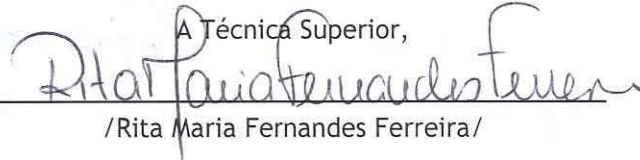 A Técnica Superior,
Rita Maria Fernandes Ferreira
/Rita Maria Fernandes Ferreira/